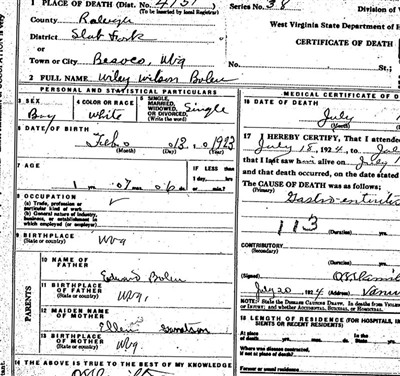 1 PLACE OF DEATH (Dist. No. 4151
(To be inserted by Local Registrar)
Series No. 38
Division of V
County Raleigh
West Virginia State Department of H
District Slab Fork
CERTIFICATE OF DEATH
or
Town or City
W.Va
No.
St.;
2 FULL NAME Wiley Wilson Bolen
PERSONAL AND STATISTICAL PARTICULARS
MEDICAL CERTIFICATE OF
3 SEX
Boy
4 COLOR OR RACE
White
5 SINGLE, MARRIED, WIDOWED, OR DIVORCED (Write the word)
Single
16 DATE OF DEATH
July
(Month)
6 DATE OF BIRTH
(Month)
(Day)
17 I HEREBY CERTIFY, That I attended
July 18, 1924, to
that I last saw him alive on July 1
and that death occurred, on the date stated
The CAUSE OF DEATH was as follows:
Gastro-enteritis
7 AGE
IF LESS than
1 day,
hrs
or
min.?
8 OCCUPATION
(a) Trade, profession or particular kind of work
(b) General nature of industry, business, or establishment in which employed (or employer)
113
(Duration)
yrs.
CONTRIBUTORY
(Secondary)
(Duration)
yrs.
9 BIRTHPLACE
(State or country)
W Va
10 NAME OF FATHER
Edward Bolen
(Signed)
July 20, 1924 (Address)
11 BIRTHPLACE OF FATHER
(State or country)
W Va.
NOTE: State the DISEASE CAUSING DEATH. In deaths from VIOLEN
or INJURY; and whether ACCIDENTAL, SUICIDAL, or HOMICIDAL.
PARENTS
12 MAIDEN NAME OF MOTHER
Ellen
18 LENGTH OF RESIDENCE (FOR HOSPITALS, IN
SIENTS OR RECENT RESIDENTS)
13 BIRTHPLACE OF MOTHER
(State or country)
W Va
At place of death
yrs.
mos.
ds.
Where was disease contracted,
if not at place of death?
14 THE ABOVE IS TRUE TO THE BEST OF MY KNOWLEDGE
Former or usual residence